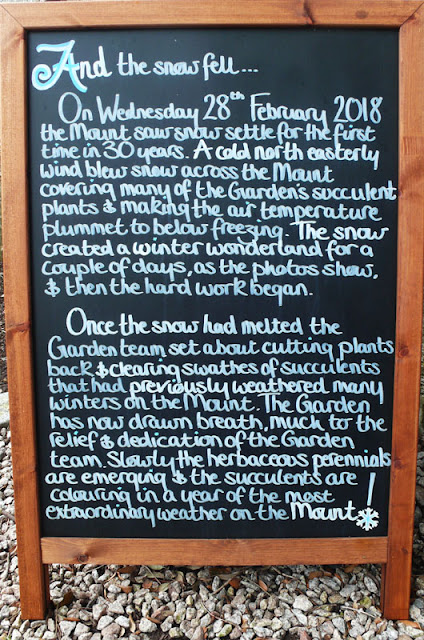 And the snow fell...
On Wednesday 28th February 2018
the Mount saw snow settle for the first
time in 30 years. A cold north easterly
wind blew snow across the Mount
covering many of the Garden's succulent
plants & making the air temperature
plummet to below freezing. The snow
created a winter wonderland for a
couple of days, as the photos show,
& then the hard work began.
Once the snow had melted the
Garden team set about cutting plants
back & clearing swathes of succulents
that had previously weathered many
winters on the Mount. The Garden
has now drawn breath, much to the
relief & dedication of the Garden
team. Slowly the herbaceous perennials
are emerging & the succulents are
colouring in a year of the most
extraordinary weather on the Mount!